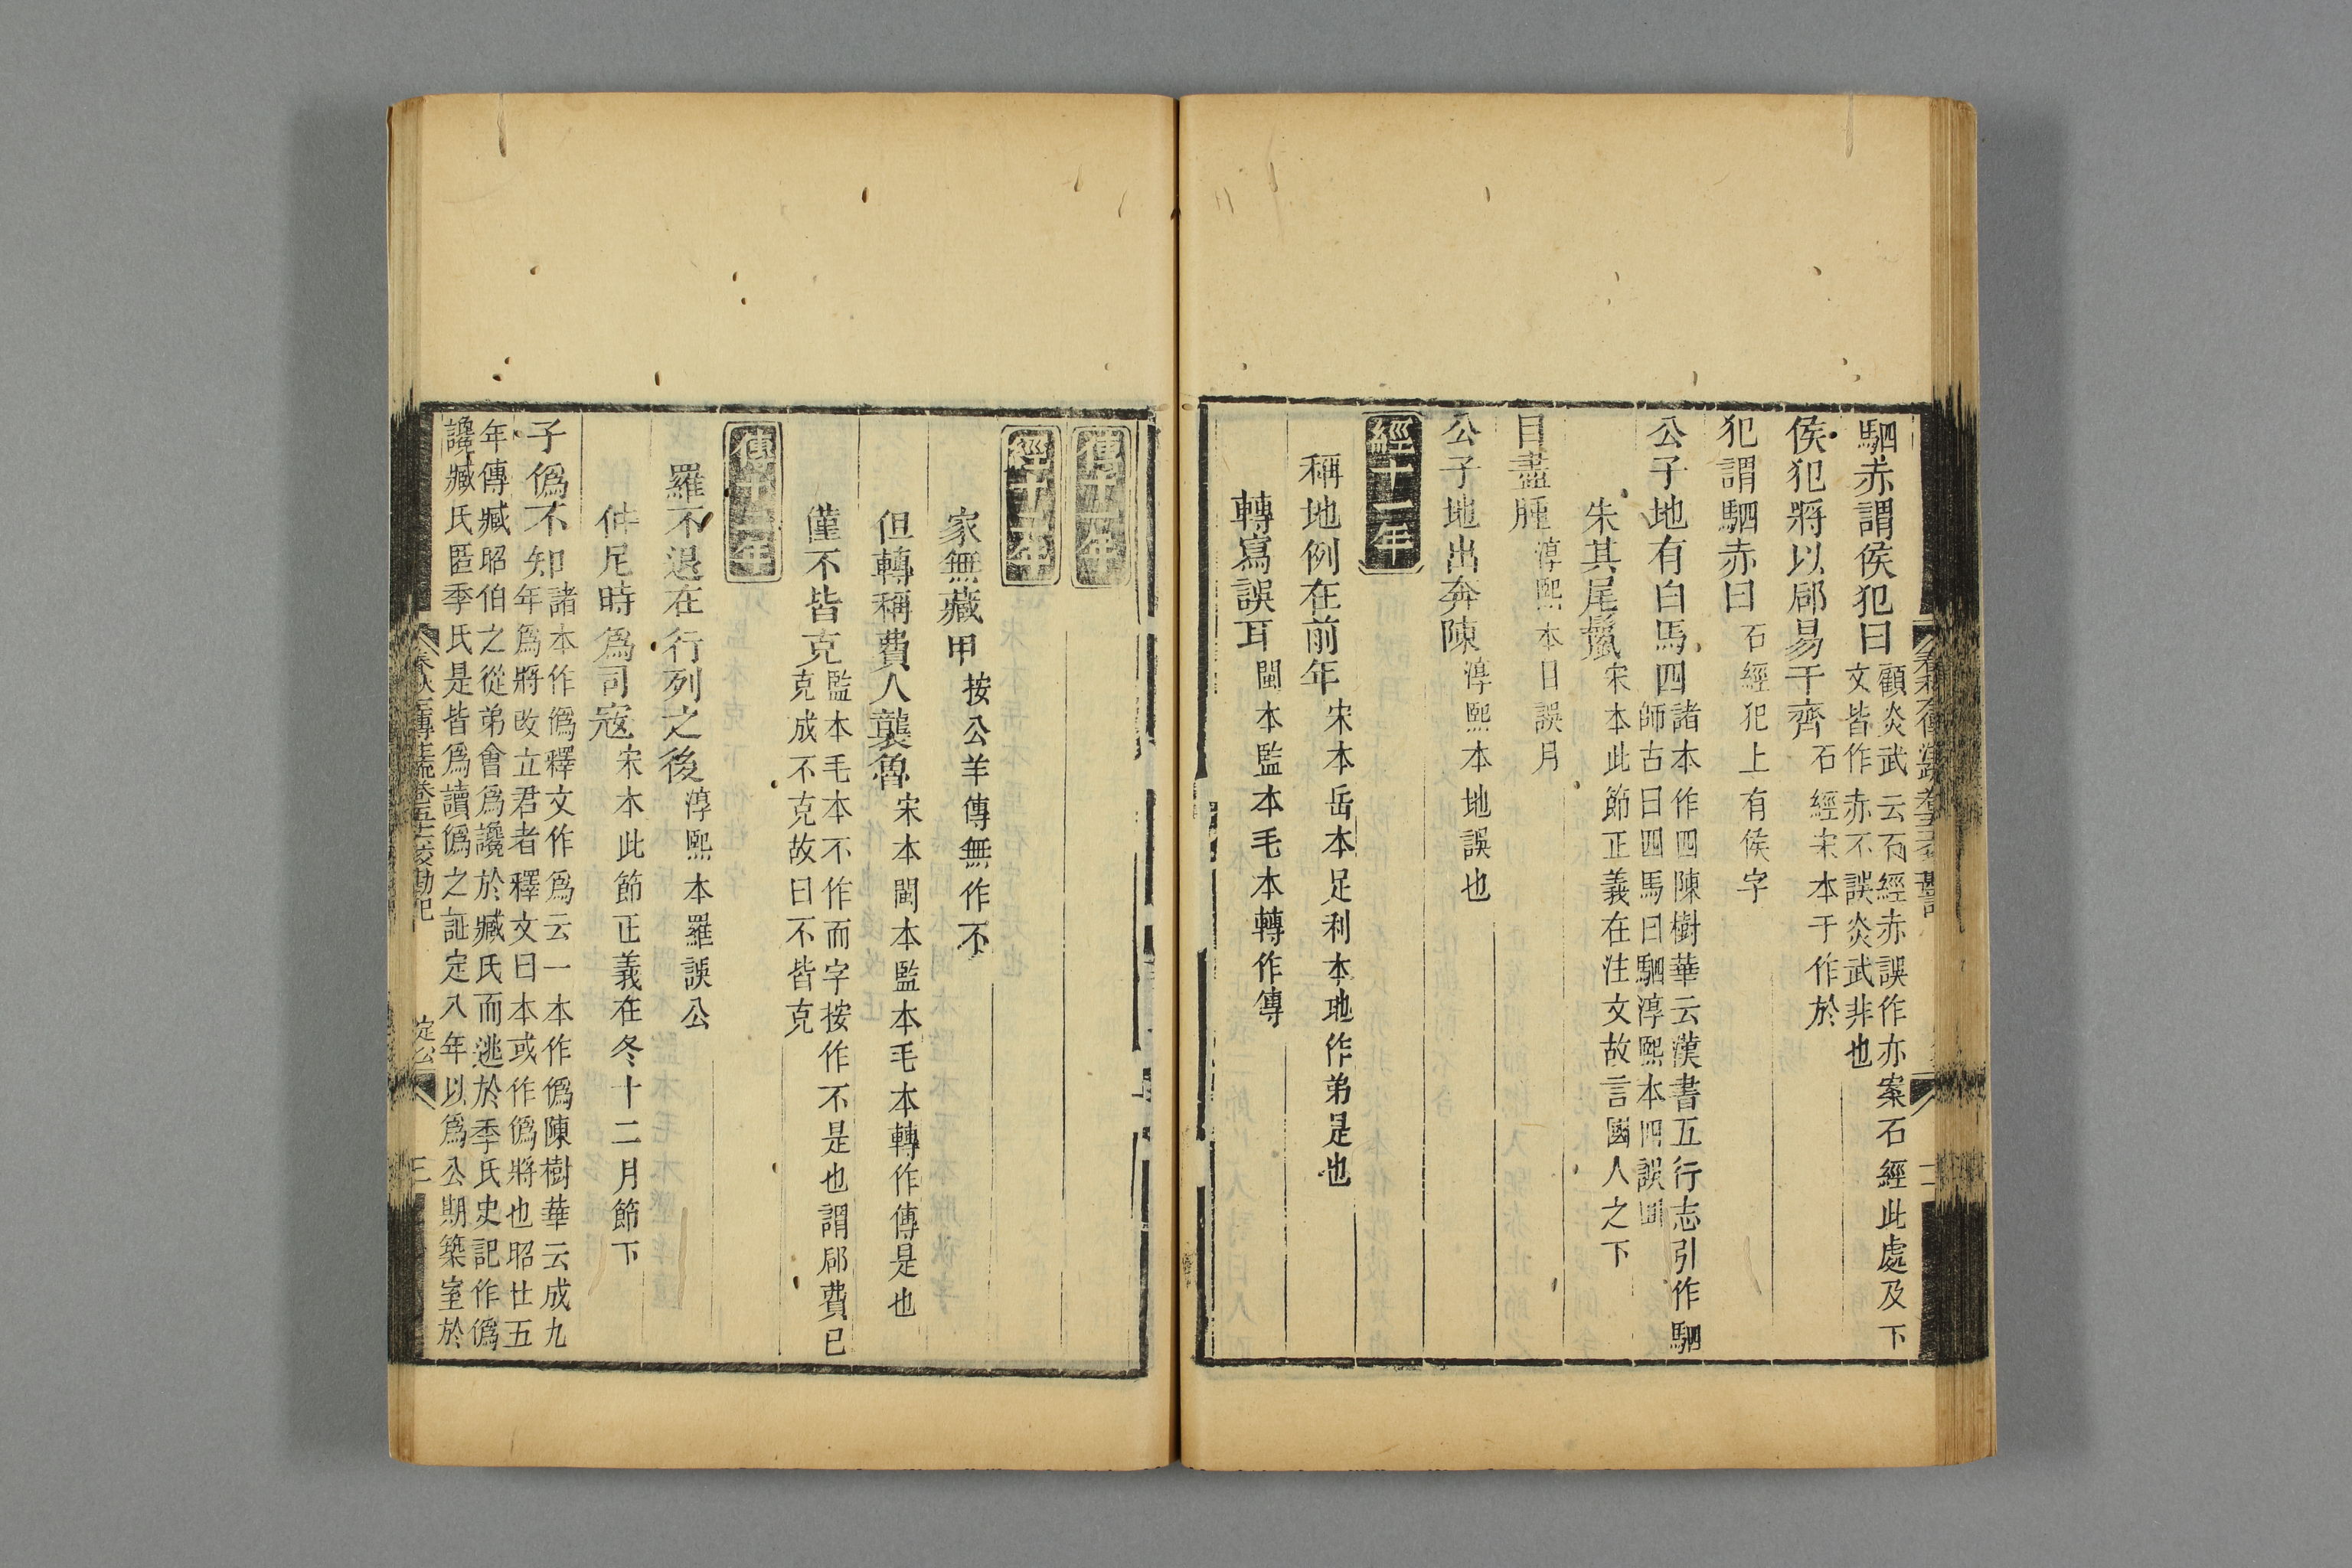 駟赤謂侯犯曰顧炎武云石經赤誤作亦案石經此處及下
文皆作赤不誤炎武非也
侯犯將以郈易于齊石經宋本于作於
犯謂駟赤曰石經犯上有侯字
公子地有白馬四諸本作四陳樹華云漢書五行志引作駟
師古曰四馬曰駟淳熙本四誤
朱其尾鬣宋本此節正義在注文故言國人之下
目盡腫淳熙本目誤月
公子地出奔陳淳熙本地誤也
經十一年
稱地例在前年宋本岳本足利本地作弟是也
轉寫誤耳閩本監本毛本轉作傳
傳十一年
經十二年
家無藏甲按公羊傳無作不
但轉稱費人襲魯宋本閩本監本毛本轉作傳是也
僅不皆克監本毛本不作而字按作不是也謂郈費已
克成不克故曰不皆克
傳十二年
羅不退在行列之後淳熙本羅誤公
仲尼時爲司寇宋本此節正義在冬十二月節下
子僞不知諸本作僞釋文作爲云一本作僞陳樹華云成九
年爲將改立君者釋文曰本或作僞將也昭廿五
年傳臧昭伯之從弟會爲讒於臧氏而逃於季氏史記作僞
讒臧氏匿季氏是皆爲讀僞之証定八年以爲公期築室於
春秋左傳注疏卷五十六校勘記 定公 三